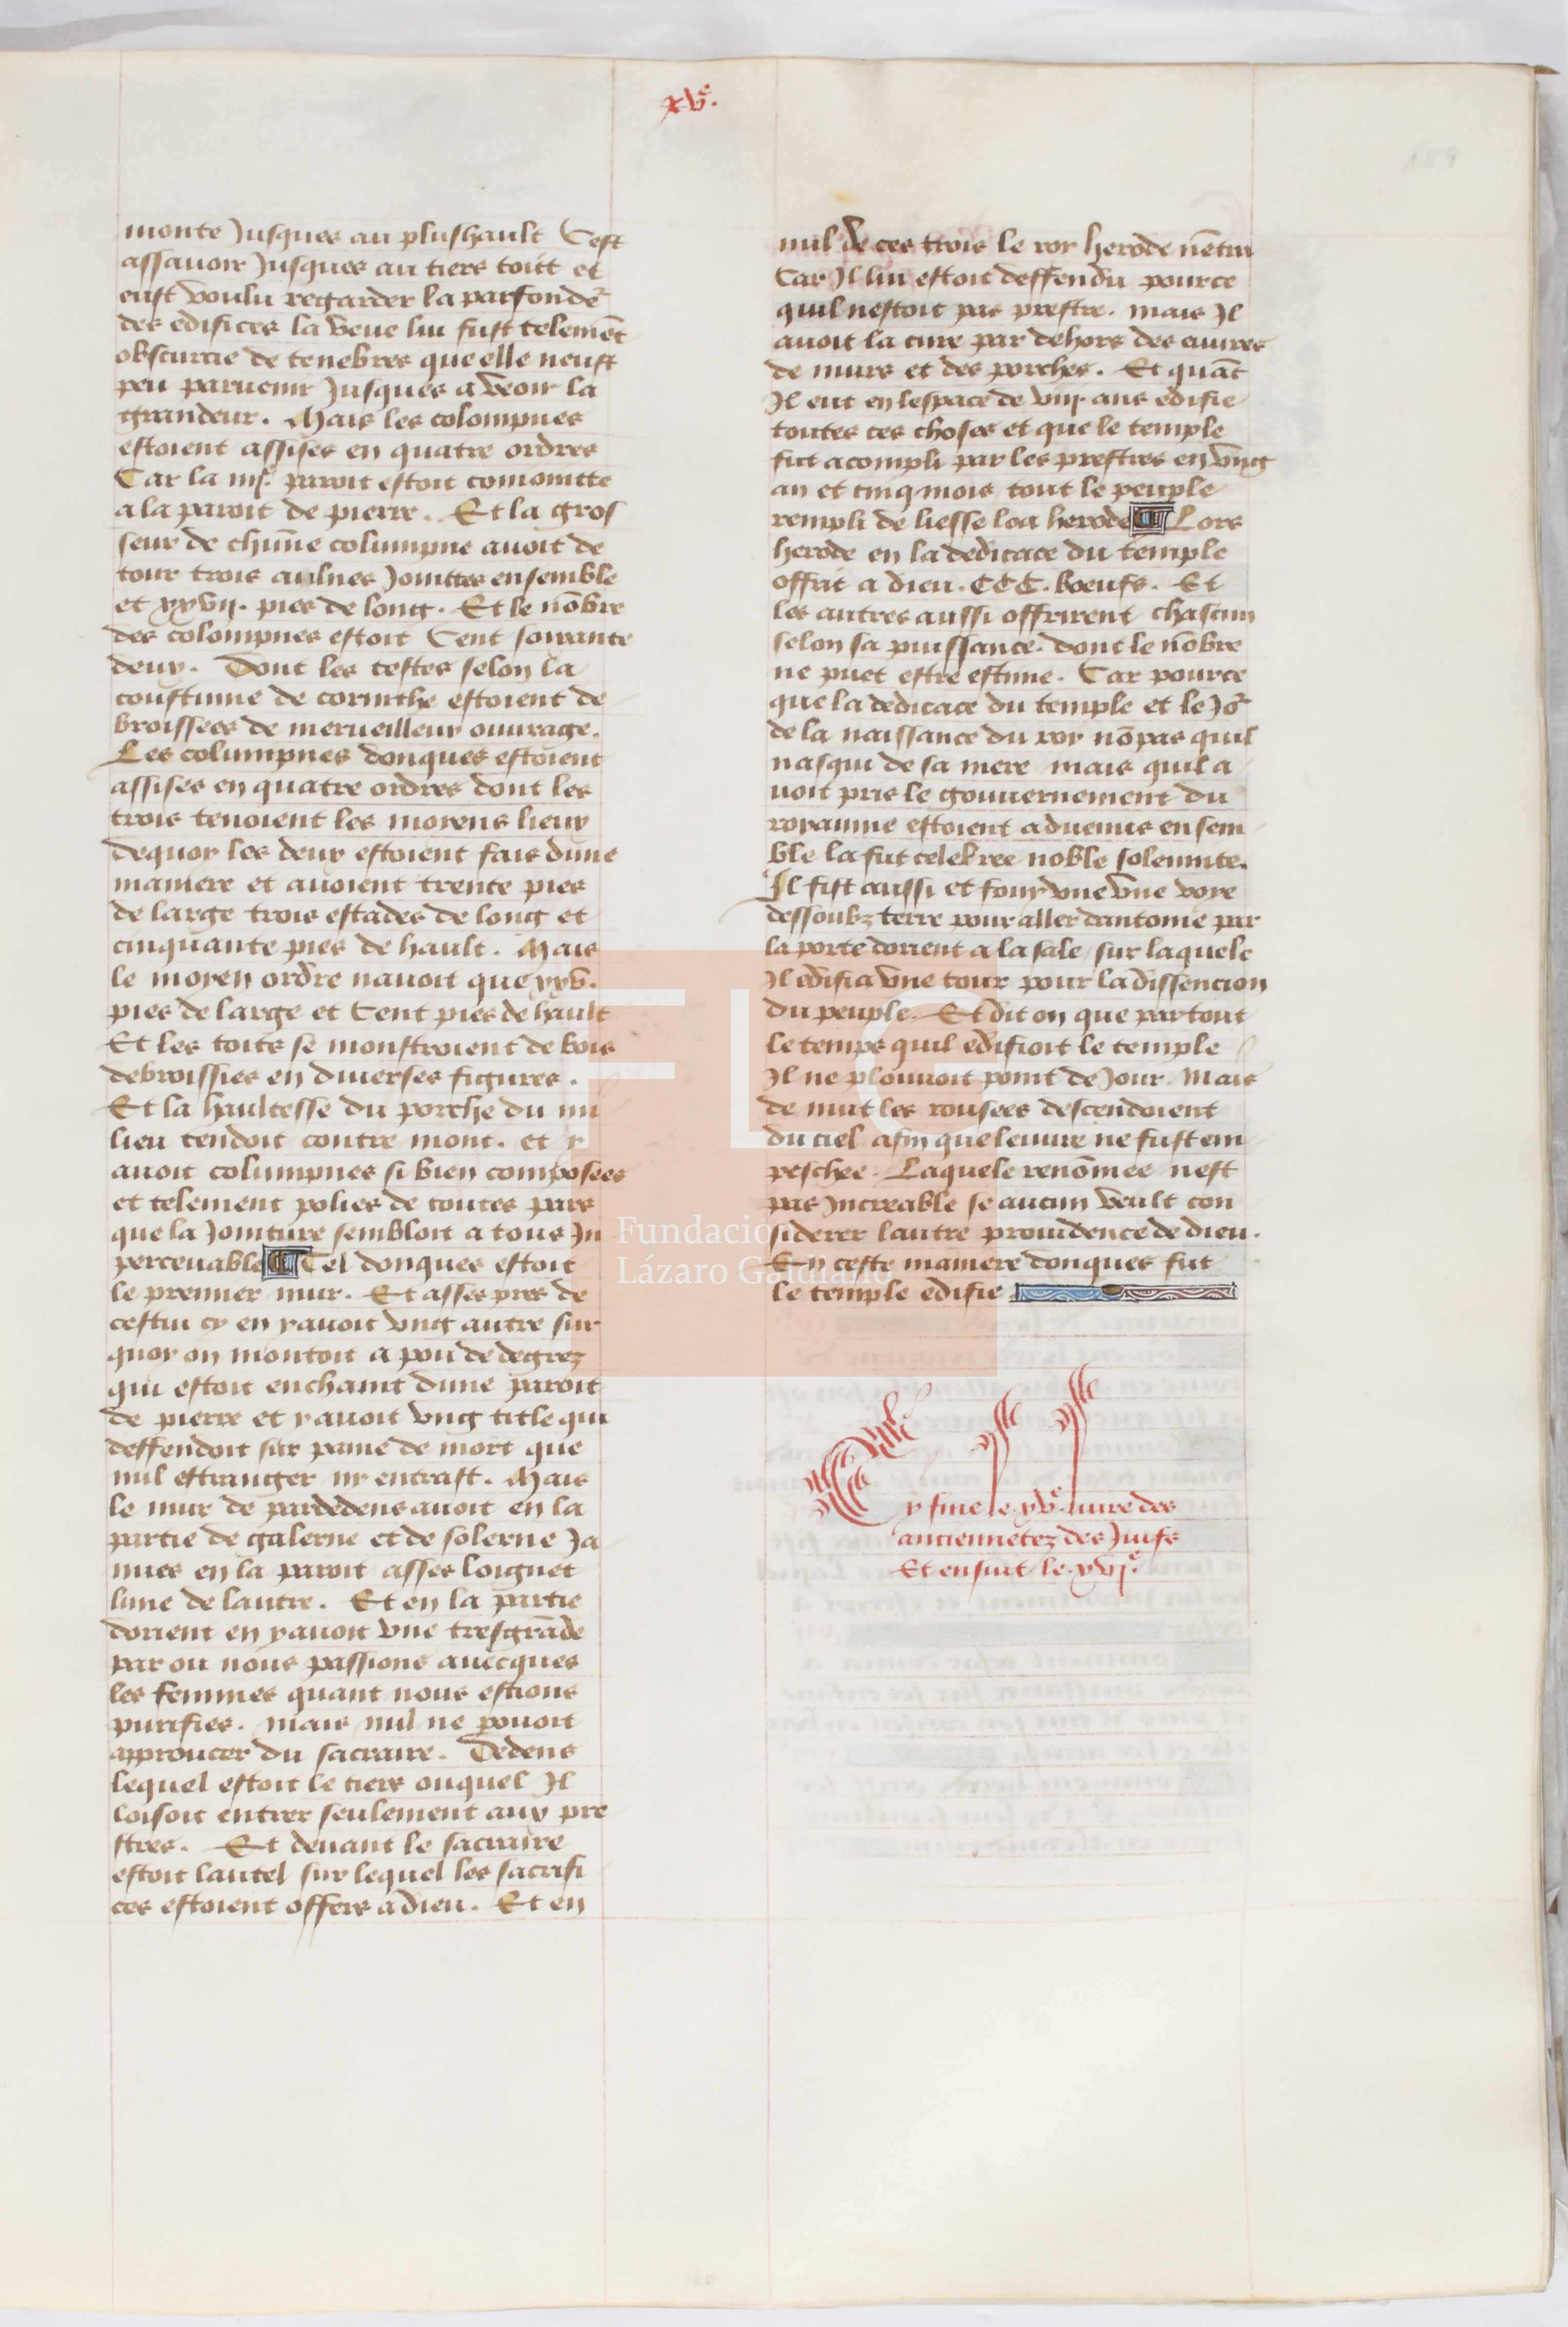 xve.
159
monte Jusques au plushault Cest
assauoir Jusques au tiers toict et
eust voulu regarder la parfonde
des edifices la veue lui fust telemēt
obscurcie de tenebres que elle neust
peu paruenir Jusques a veoir la
grandeur. Mais les colompnes
estoient assises en quatre ordres
Car la iiije. paroit estoit comoincte
a la paroit de pierre. Et la gros
seur de chūne columpne auoit de
tour trois aulnes Joinctes ensemble
et xxvij. pies de long. Et le nōbre
des colompnes estoit Cent soixante
deux. Dont les testes selon la
coustume de corinthe estoient de
broissees de merueilleux ouurage.
Les columpnes donques estoient
assises en quatre ordres dont les
trois tenoient les moyens lieux
dequoy les deux estoient fais dune
maniere et auoient trente pies
de large trois estades de long et
cinquante pies de hault. Mais
le moyen ordre nauoit que xxv.
pies de large et Cent pies de hault
Et les toits se monstroient de bois
debroissies en diuerses figures.
Et la haultesse du porche du mi
lieu tendoit contre mont. et y
auoit columpnes si bien composees
et telement polies de toutes pars
que la Joincture sembloit a tous In
perceuable ¶ Tel donques estoit
le premier mur. Et asses pres de
cestui cy en y auoit vng autre sur
quoy on montoit a pou de degrez
qui estoit enchaint dune paroit
de pierre et y auoit vng title qui
deffendoit sur paine de mort que
nul estranger ny entrast. Mais
le mur de pardedens auoit en la
partie de galerne et de solerne Ja
nues en la paroit asses loignet
lune de lautre. Et en la partie
dorient en y auoit vne tresgrāde
par ou nous passions auecques
les femmes quant nous estions
purifies. mais nul ne pouoit
approucer du sacraire. Dedens
lequel estoit le tiers ouquel Il
loisoit entrer seulement aux pre
stres. Et deuant le sacraire
estoit lautel sur lequel les sacrifi
ces estoient offers a dieu. Et en
nul de ces trois le roy herode nētra
Car Il lui estoit deffendu pource
quil nestoit pas prestre. mais Il
auoit la cure par dehors des euures
de murs et des porches. Et quāt
Il eut en lespace de viij ans edifie
toutes ces choses et que le temple
fut acompli par les prestres en vng
an et cinq mois tout le peuple
rempli de liesse loa herode ¶ Lors
herode en la dedicace du temple
offrit a dieu. CCC. boeufs. Et
les autres aussi offrirent chascun
selon sa puissance. dont le nōbre
ne puet estre estime. Car pource
que la dedicace du temple et le Jor
de la naissance du roy nō pas quil
nasqui de sa mere mais quil a
uoit pris le gouuernement du
royaume estoient aduenus ensem
ble la fut celebree noble solennite.
Il fist aussi et fouyr vne voye
dessoubz terre pour aller dantoine par
la porte dorient a la sale sur laquele
Il edifia vne tour pour la dissencion
du peuple. Et dit on que par tout
le temps quil edifioit le temple
Il ne plouuoit point de Jour. Mais
de nuit les rousees descendoient
du ciel afin que leuure ne fust em
peschee. Laquele renōmee nest
pas Increable se aucun veult con
siderer lautre prouidence de dieu.
En ceste maniere donques fut
le temple edifie
Cy fine le xve. liure des
anciennetez des Juifs
Et ensuit le xvje.
FLG
Fundación
Lázaro Galdiano